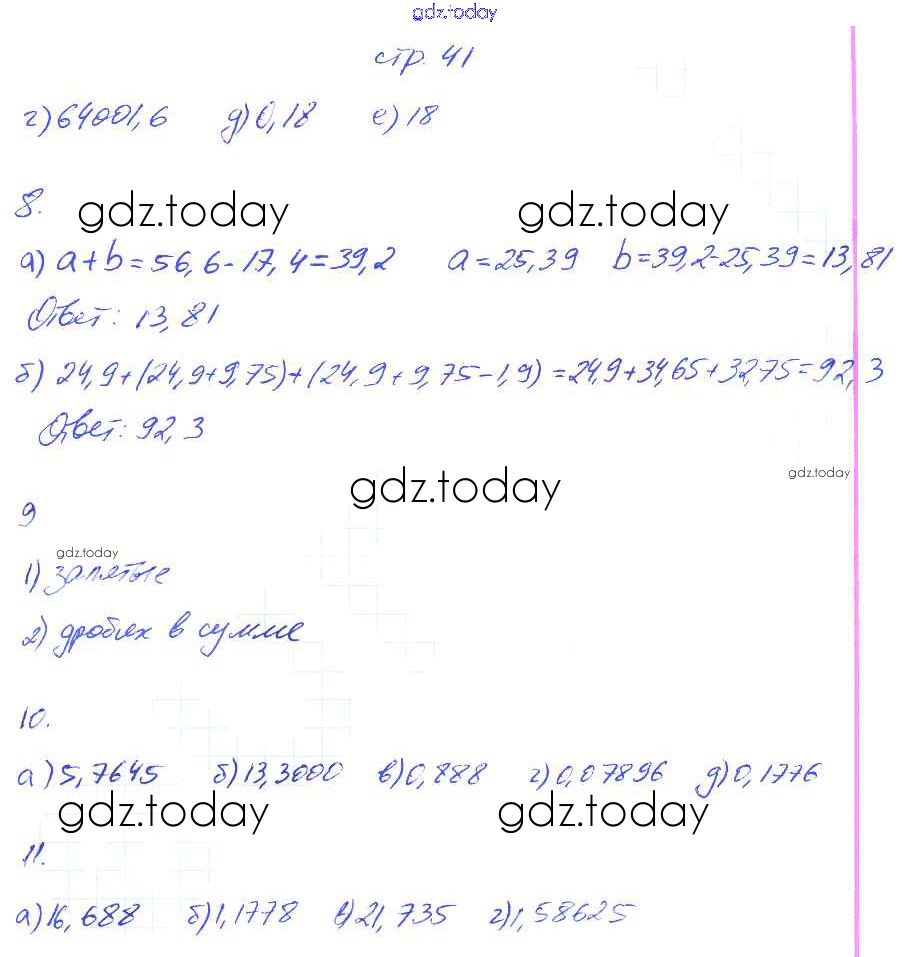 gdz.today
стр. 41
г) 64001,6 д) 0,18 е) 18
8. gdz.today gdz.today
а) a+b=56,6-17,4=39,2 a=25,39 b=39,2-25,39=13,81
Ответ: 13,81
б) 24,9+(24,9+9,75)+(24,9+9,75-1,9)=24,9+34,65+32,75=92,3
Ответ: 92,3
gdz.today
gdz.today
9
gdz.today
1) запятые
2) дробях в сумме
10.
а) 5,7645 б) 13,3000 в) 0,888 г) 0,07896 д) 0,1776
gdz.today gdz.today
11.
а) 16,688 б) 1,1778 в) 21,735 г) 1,58625